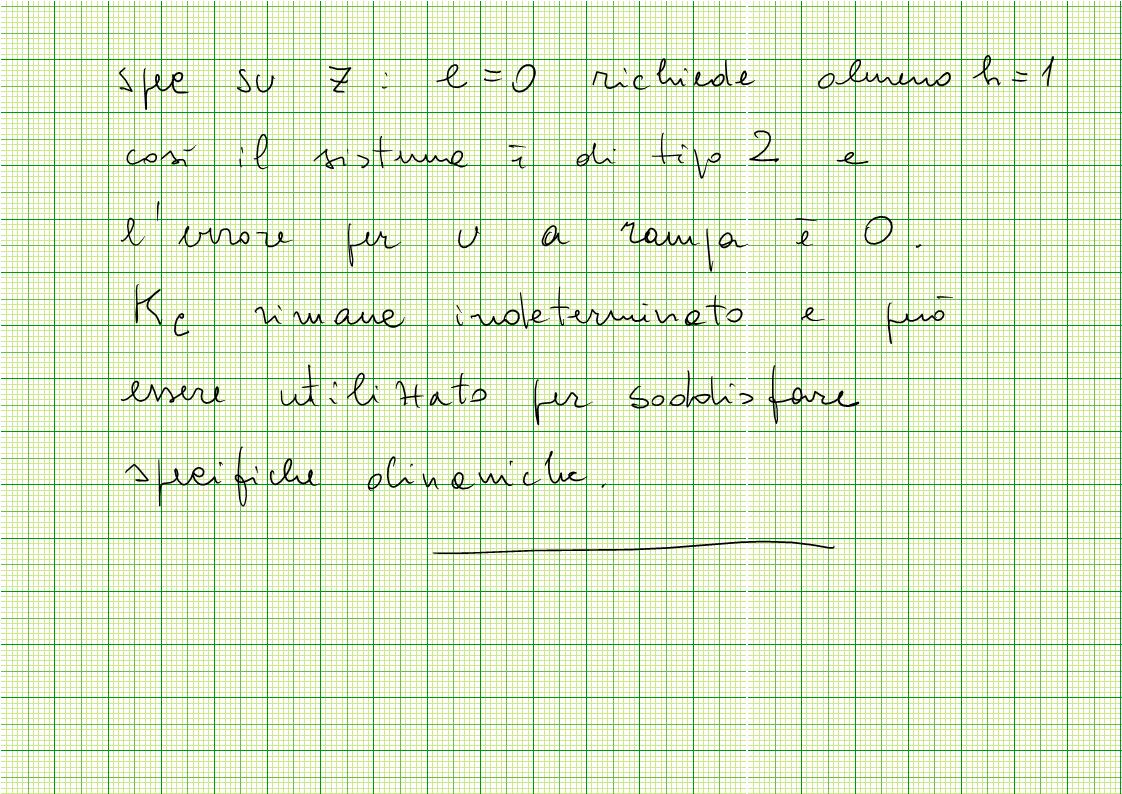 spec su z : e = 0 richiede almeno h = 1
così il sistema è di tipo 2 e
l'errore per u a rampa è 0.
Kc rimane indeterminato e può
essere utilizzato per soddisfare
specifiche dinamiche.